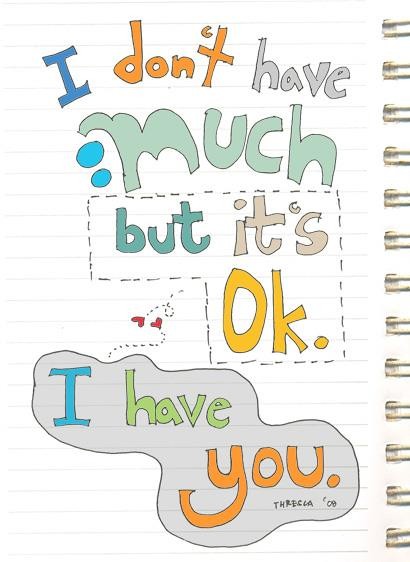 I don't have
much
but it's
Ok.
I have
you.
THRESCA '08